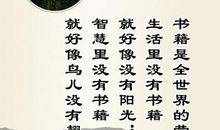 书籍是全世界的
生活里没有书籍
就好像没有阳光；
智慧里没有书籍
就好像鸟儿没有